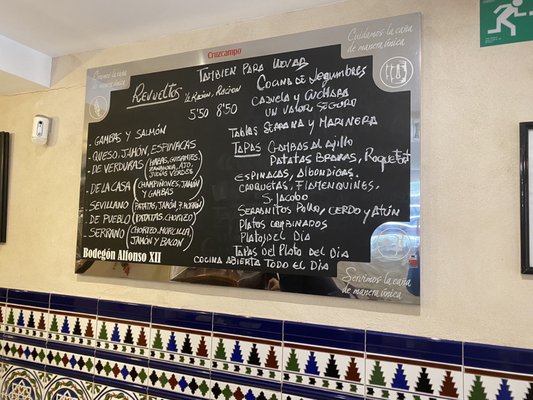 Cruzcampo
Cuidamos la caña
de manera única
TAMBIEN PARA LLEVAR
REVUELTOS ½ RACION, RACION
5'50 8'50
. GAMBAS Y SALMÓN
. QUESO, JAMON, ESPINACAS
. DE VERDURAS (HABAS, GUISANTES,
ZANAHORIA, AJO,
JUDIAS VERDES
. DE LA CASA (CHAMPIÑONES, JAMÓN
Y GAMBAS
. SEVILLANO (PATATAS, JAMÓN, P. MORRON
. DE PUEBLO (PATATAS, CHORIZO
. SERRANO (CHORIZO, MORCILLA,
JAMÓN Y BACON
Bodegón Alfonso XII
COCINA DE LEGUMBRES
CAZUELA Y CUCHARA
UN VALOR SEGURO
TABLAS SERRANA Y MARINERA
TAPAS GAMBAS AL AJILLO
PATATAS BRAVAS, ROQUEFORT
ESPINACAS, ALBONDIGAS,
CROQUETAS, FLAMENQUINES,
S. JACOBO
SERRANITOS POLLO, CERDO Y ATÚN
PLATOS COMBINADOS
PLATOS DEL DIA
TAPAS DEL PLATO DEL DIA
COCINA ABIERTA TODO EL DIA
Servimos la caña
de manera única